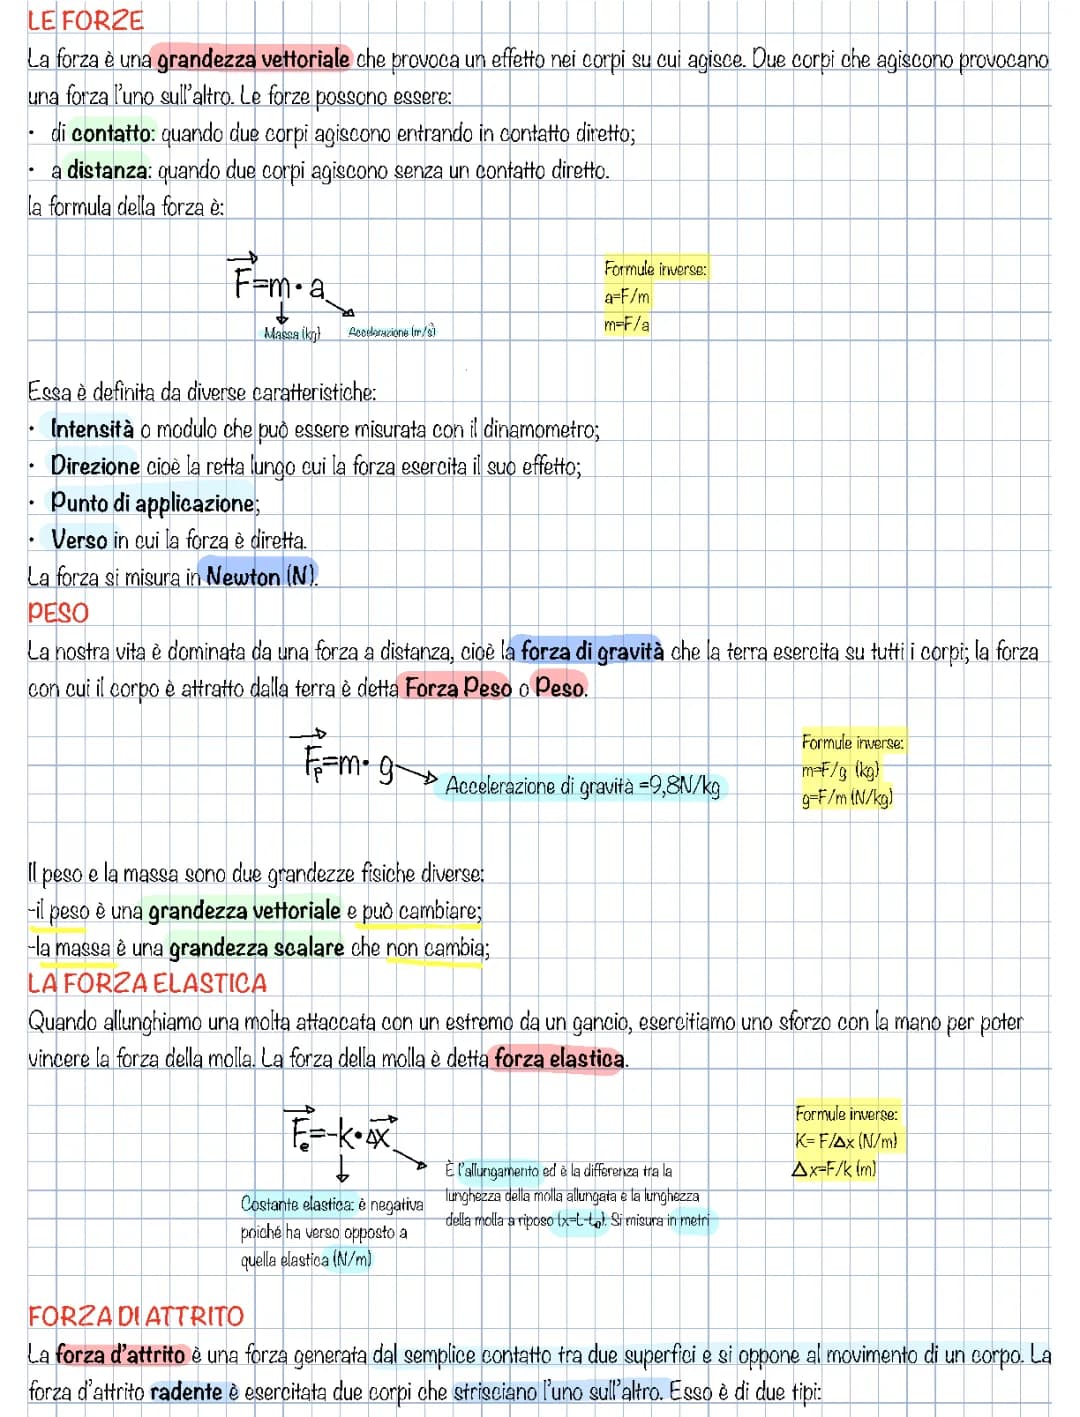 LE FORZE
La forza è una grandezza vettoriale che provoca un effetto nei corpi su cui agisce. Due corpi che agiscono provocano
una forza l'uno sull'altro. Le forze possono essere:
• di contatto: quando due corpi agiscono entrando in contatto diretto;
• a distanza: quando due corpi agiscono senza un contatto diretto.
la formula della forza è:
F=m·a
Massa (kg)
Accelerazione (m/s²)
Formule inverse:
a=F/m
m=F/a
Essa è definita da diverse caratteristiche:
• Intensità o modulo che può essere misurata con il dinamometro;
• Direzione cioè la retta lungo cui la forza esercita il suo effetto;
• Punto di applicazione;
• Verso in cui la forza è diretta.
La forza si misura in Newton (N).
PESO
La nostra vita è dominata da una forza a distanza, cioè la forza di gravità che la terra esercita su tutti i corpi; la forza
con cui il corpo è attratto dalla terra è detta Forza Peso o Peso.
Fp=m·g
Accelerazione di gravità =9,8N/kg
Formule inverse:
m=F/g (kg)
g=F/m (N/kg)
Il peso e la massa sono due grandezze fisiche diverse:
-il peso è una grandezza vettoriale e può cambiare;
-la massa è una grandezza scalare che non cambia;
LA FORZA ELASTICA
Quando allunghiamo una molta attaccata con un estremo da un gancio, esercitiamo uno sforzo con la mano per poter
vincere la forza della molla. La forza della molla è detta forza elastica.
Fe=-k·Δx
Costante elastica: è negativa
poiché ha verso opposto a
quella elastica (N/m)
È l'allungamento ed è la differenza tra la
lunghezza della molla allungata e la lunghezza
della molla a riposo (x=L-L₀). Si misura in metri
Formule inverse:
K= F/Δx (N/m)
Δx=F/k (m)
FORZA DI ATTRITO
La forza d'attrito è una forza generata dal semplice contatto tra due superfici e si oppone al movimento di un corpo. La
forza d'attrito radente è esercitata due corpi che strisciano l'uno sull'altro. Esso è di due tipi: